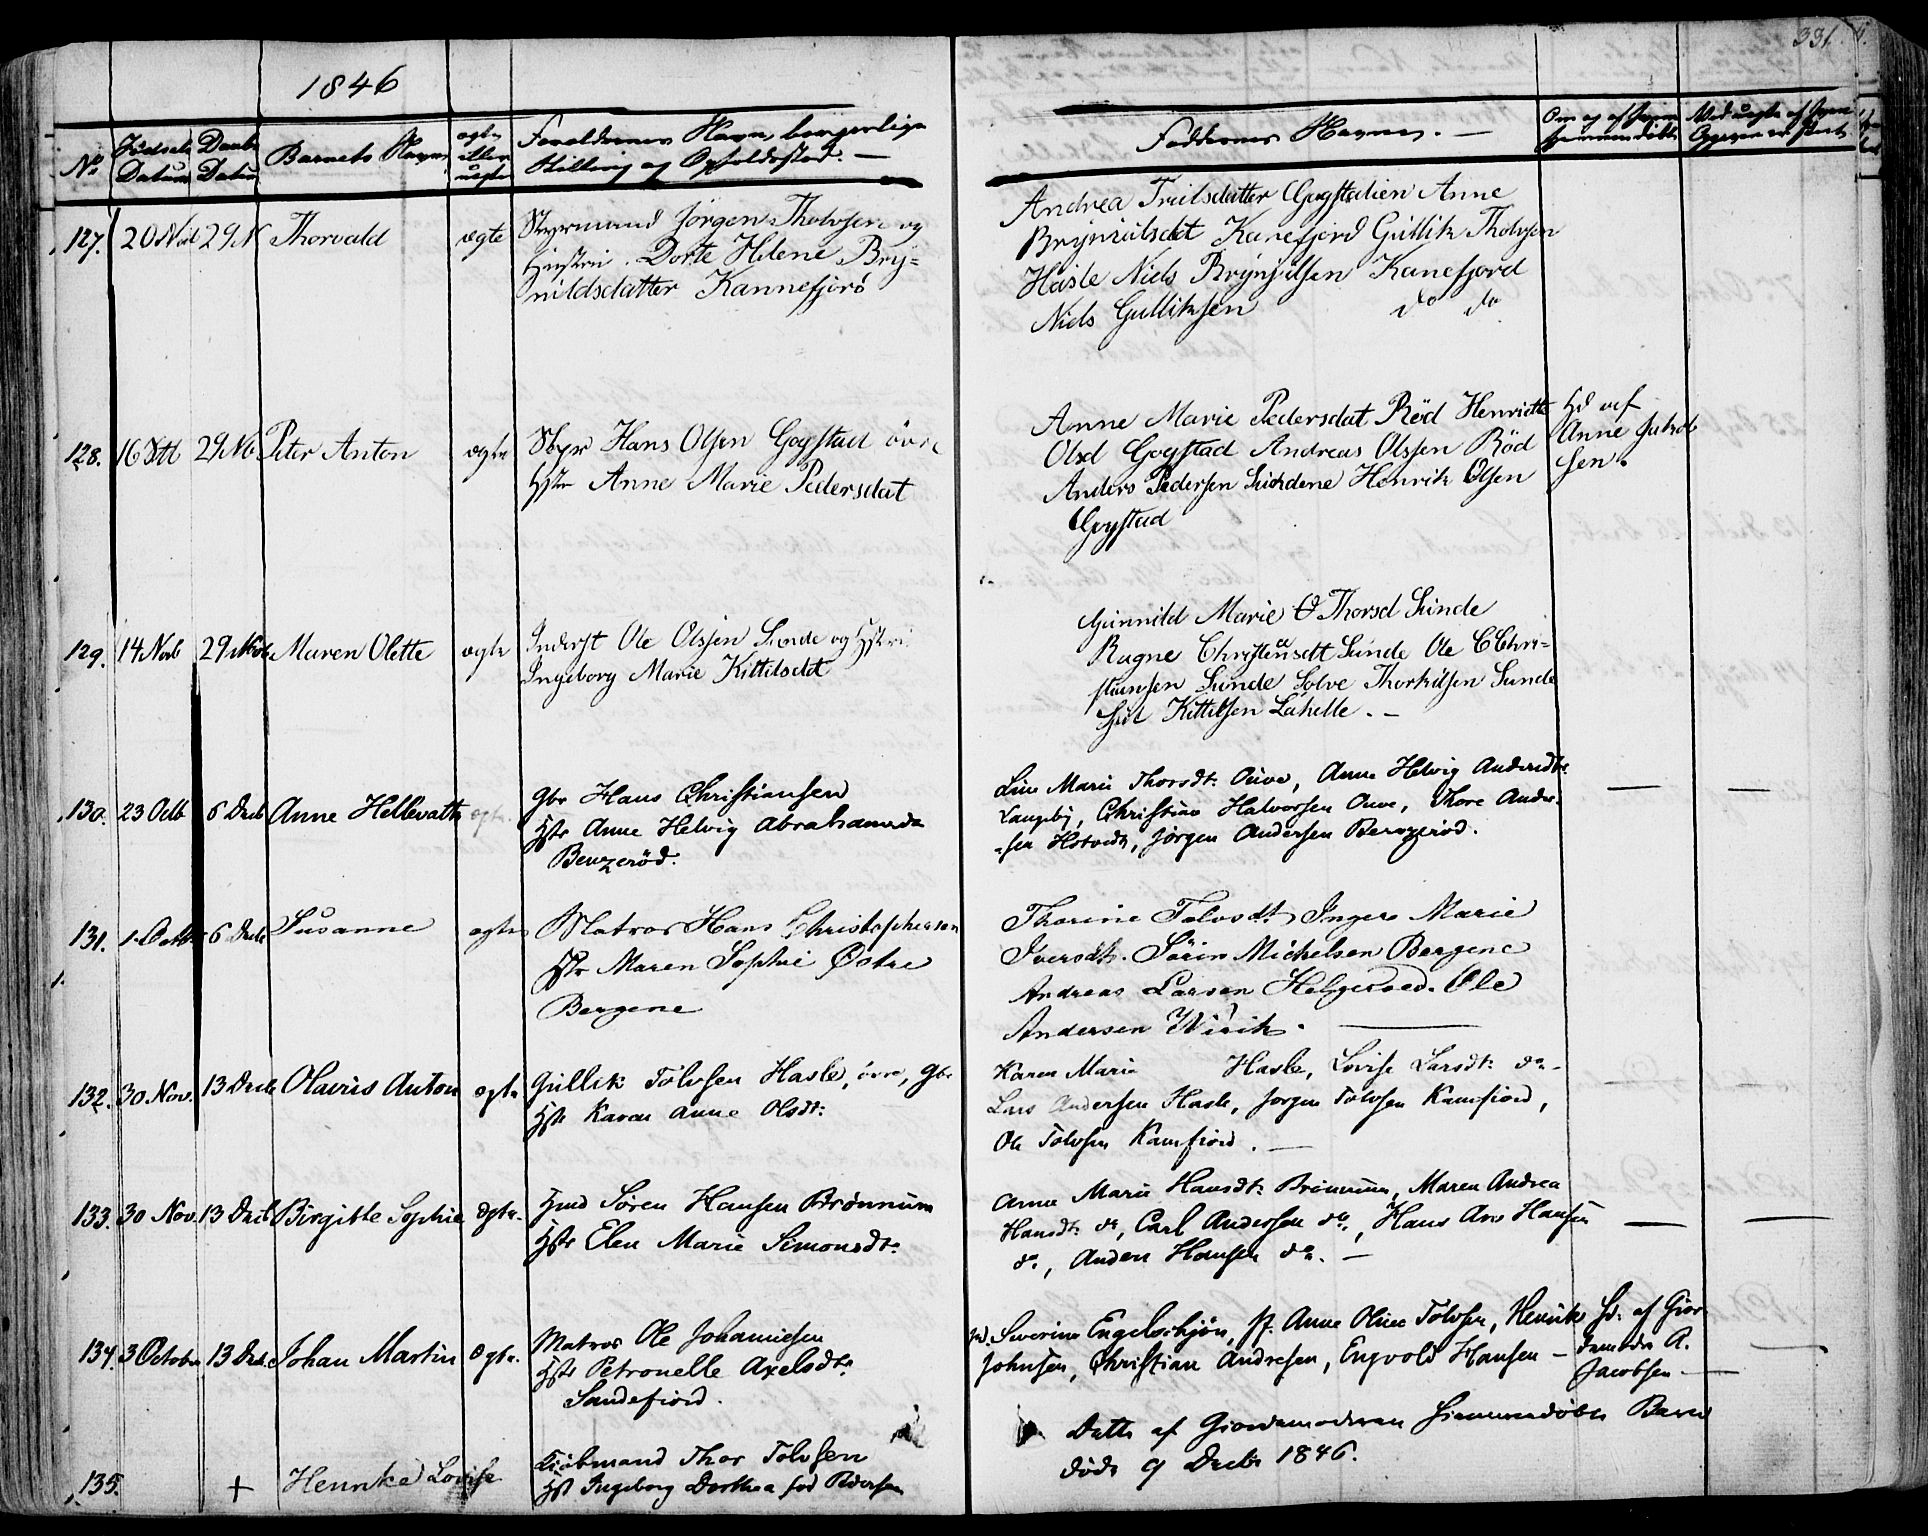 1846
331.
No
Fødsels Datum
Daabs Datum
Barnets Navn
ægte eller uægte
Forældrenes Navn, borgerlige
Stilling og Opholdssted. —
Faddernes Navne. —
127. 20 Novb 29 N Thorvald ægte
Styrmand Jörgen Tholvsen og
Hustru. Dorte Helene Bry=
nildsdatter Kannefjord
Andrea Trulsdatter Gogstadien Anne
Brynildsdat Kanefjord Gullik Tholvsen
Hasle Niels Brynjulsen Kanefjord
Niels Gulliksen do do
128. 16 Octb 29 Nb Peter Anton ægte
Hans Olsen Gogstad övre
Hstr Anne Marie Pedersdat
Anne Marie Pedersdat Röd Henriette
Olsd Gogstad Andreas Olssen Röd
Anders Pedersen Henrik Olsen
Gogstad
Hd af
Anne Jakob
sen.
129. 14 Novb 29 Novb Maren Olette ægte
Inderst Ole Olssen Sunde og Hstru
Ingeborg Marie Kittilsdt
Gunnild Marie O Thorsd Sunde
Ragne Christensdt Sunde Ole C Chri-
stiansen Sunde Solve Thorkilsen Sunde
Kittilsen Lahelle. —
130. 23 Octb 6 Decb Anne Hellevatte ægte.
Gbr Hans Christiansen
Hstr Anne Helvig Abrahamsdt
Benzeröd.
Line Marie Thorsdt: Ouve, Anne Helvig Andersdtr
Langeby, Christian Halvorsen Ouve, Thore Ander-
-sen Hotvedt, Jörgen Andersen Benzeröd.
131. 1 Octb 6 Decb Susanne ægte
Matros Hans Christophersen
Hstr Maren Sophie Østre
Bergene
Thorine Tolvsdt Ingere Marie
Iversdt. Sörin Michelsen Bergene
Andreas Larsen Helgeroed. Ole
Andersen Virik.
132. 30 Nov. 13 Decb Olavus Anton ægte
Gullik Tolvsen Hasle, övre, Gbr
Hstr Karen Anne Olsdt:
Karen Marie Hasle, Lovise Larsdt: do-
Lars Andersen Hasle, Jörgen Tolvsen Kamfiord,
Ole Tolvsen Kamfiord. —
133. 30 Nov. 13 Decb Birgitte Sophie ægte.
Hmd Sören Hansen Brönnum
Hstr Elen Marie Simonsdt:
Anne Marie Hansdt: Brönnum, Maren Andrea
Hansdt: do, Carl Andersen do, Hans Ars Hansen
do, Anders Hansen do. —
134. 3 October 13 Decb Johan Martin ægte.
Matros Ole Johannesen
Hstr Petronelle Axelsdtr
Sandefiord.
Severine Engelschjön, Jf. Anne Oline Tolvsen, Henrik
Johnsen, Christian Andresen, Engvold Hansen —
Hd. af Gior-
demoder A.
Jacobsen —
135. + Henrike Lovise
Kiöbmand Thor Tolvsen
Hst Ingeborg Dorthea föd Pedersen
Dette af Giordemoderen hiemmedöbte Barn
döde 9 Decbr 1846.